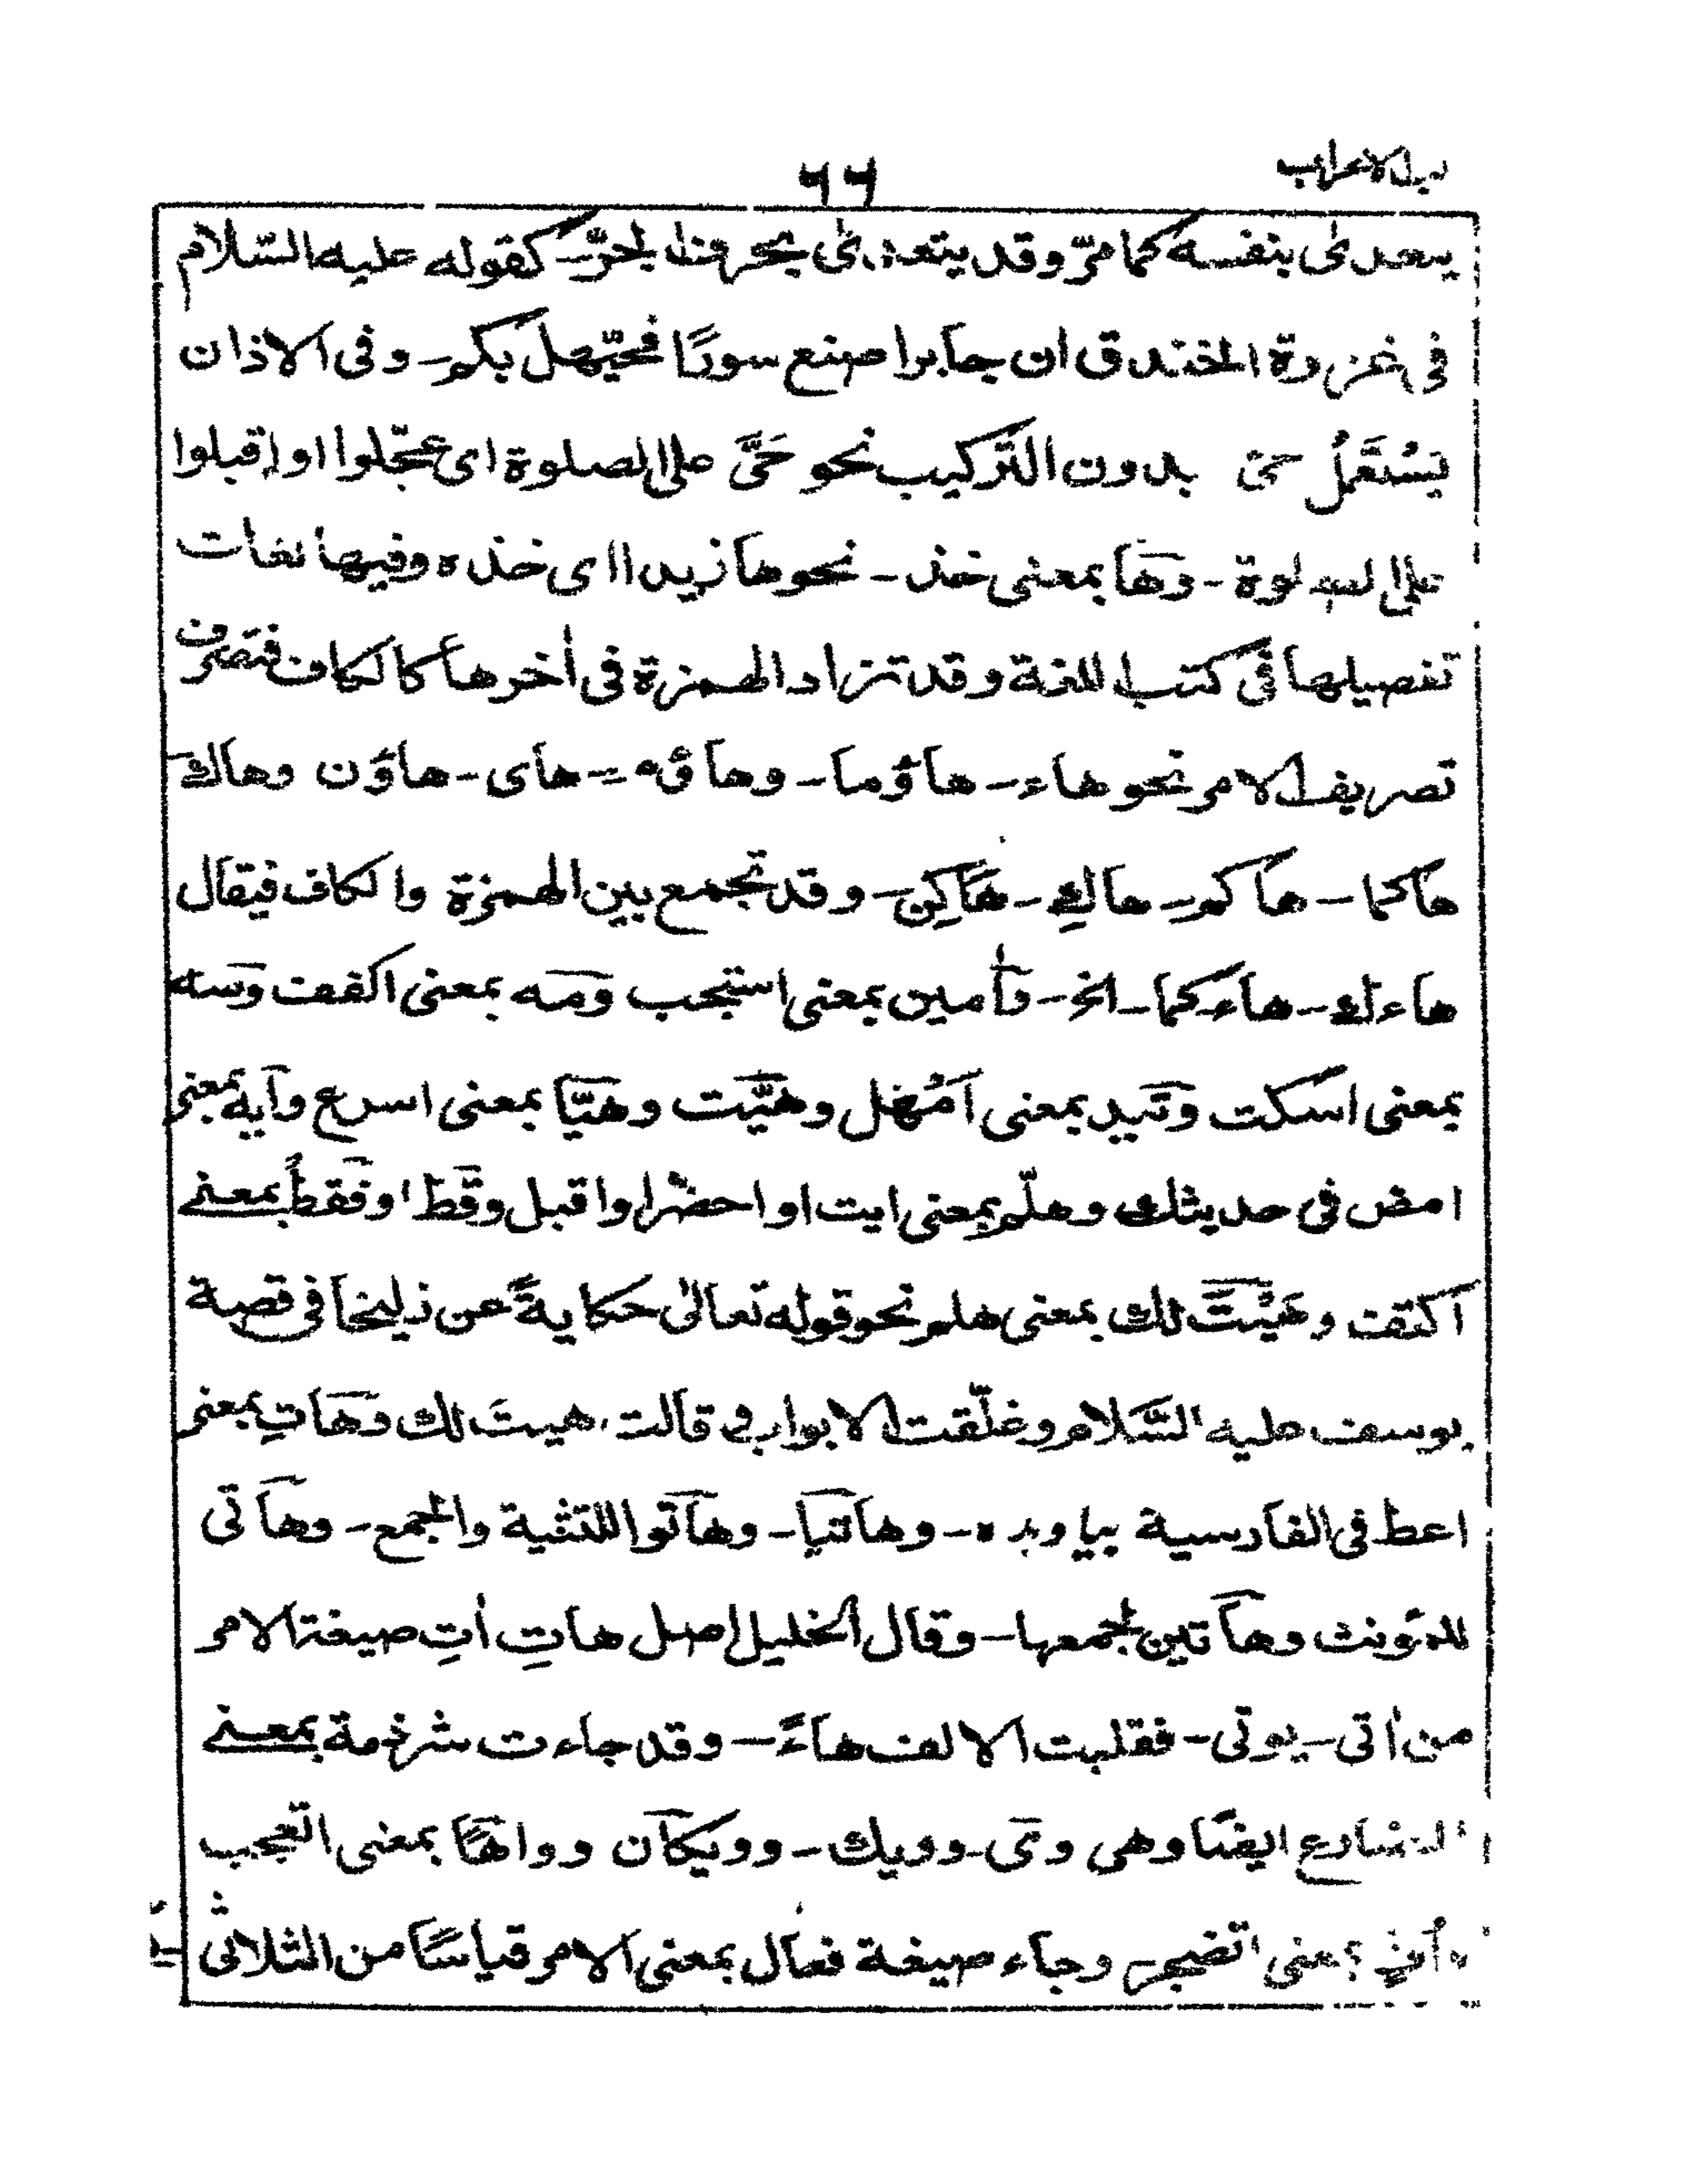 ٦٦
يتعدى بنفسه كما مرّ وقد يتعدى بحرف الجرّ كقوله عليه السّلام
فى غزوة الخندق ان جابرا صنع سورًا فحيّهل بكم - وفى الاذان
يُسْتَعْمَلُ حىّ بدون التّركيب نحو حَىَّ على الصلوة اى عجّلوا او اقبلوا
على الصلوة - وهَا بمعنى خذ - نحو ها زيدا اى خذه وفيها لغات
تفصيلها فى كتب اللغة وقد تزاد الهمزة فى أخرها كالكاف فتصرف
تصريف الامر نحو هاء - هاؤما - وهاؤم - هاى - هاؤن وهاك
هاكما - هاكم - هاكِ - هاكن - وقد تجمع بين الهمزة والكاف فيقال
هاءك - هاءكما - الخ - وأمين بمعنى استجب ومَه بمعنى اكفف وصَه
بمعنى اسكت وتَيد بمعنى اَمْهل وهَيَّت وهَيَّا بمعنى اسرع وآيه بمعنى
امض فى حديثك وهلّم بمعنى ايت او احضرا واقبل وقَط او فقط بمعنى
اكتف وهَيْتَ لك بمعنى هلم نحو قوله تعالى حكايةً عن زليخا فى قصة
يوسف عليه السَّلام وغلّقت الابواب و قالت هيتَ لك وهَاتِ بمعنى
اعط فى الفارسية بياوبده - وهاتيا - وهاتوا للتثنية والجمع - وهاتى
للمؤنث وهاتين لجمعها - وقال الخليل اصل هاتِ اٰتِ صيغة الامر
من اٰتى - يوتى - فقلبت الالف هاءً - وقد جاءت شرذمة بمعنى
المضارع ايضًا وهى وَى - وويك - وويكأن وواهًا بمعنى اتعجب
وأفٍّ بمعنى اتضجر - وجاء صيغة فعال بمعنى الامر قياسًا من الثلاثى